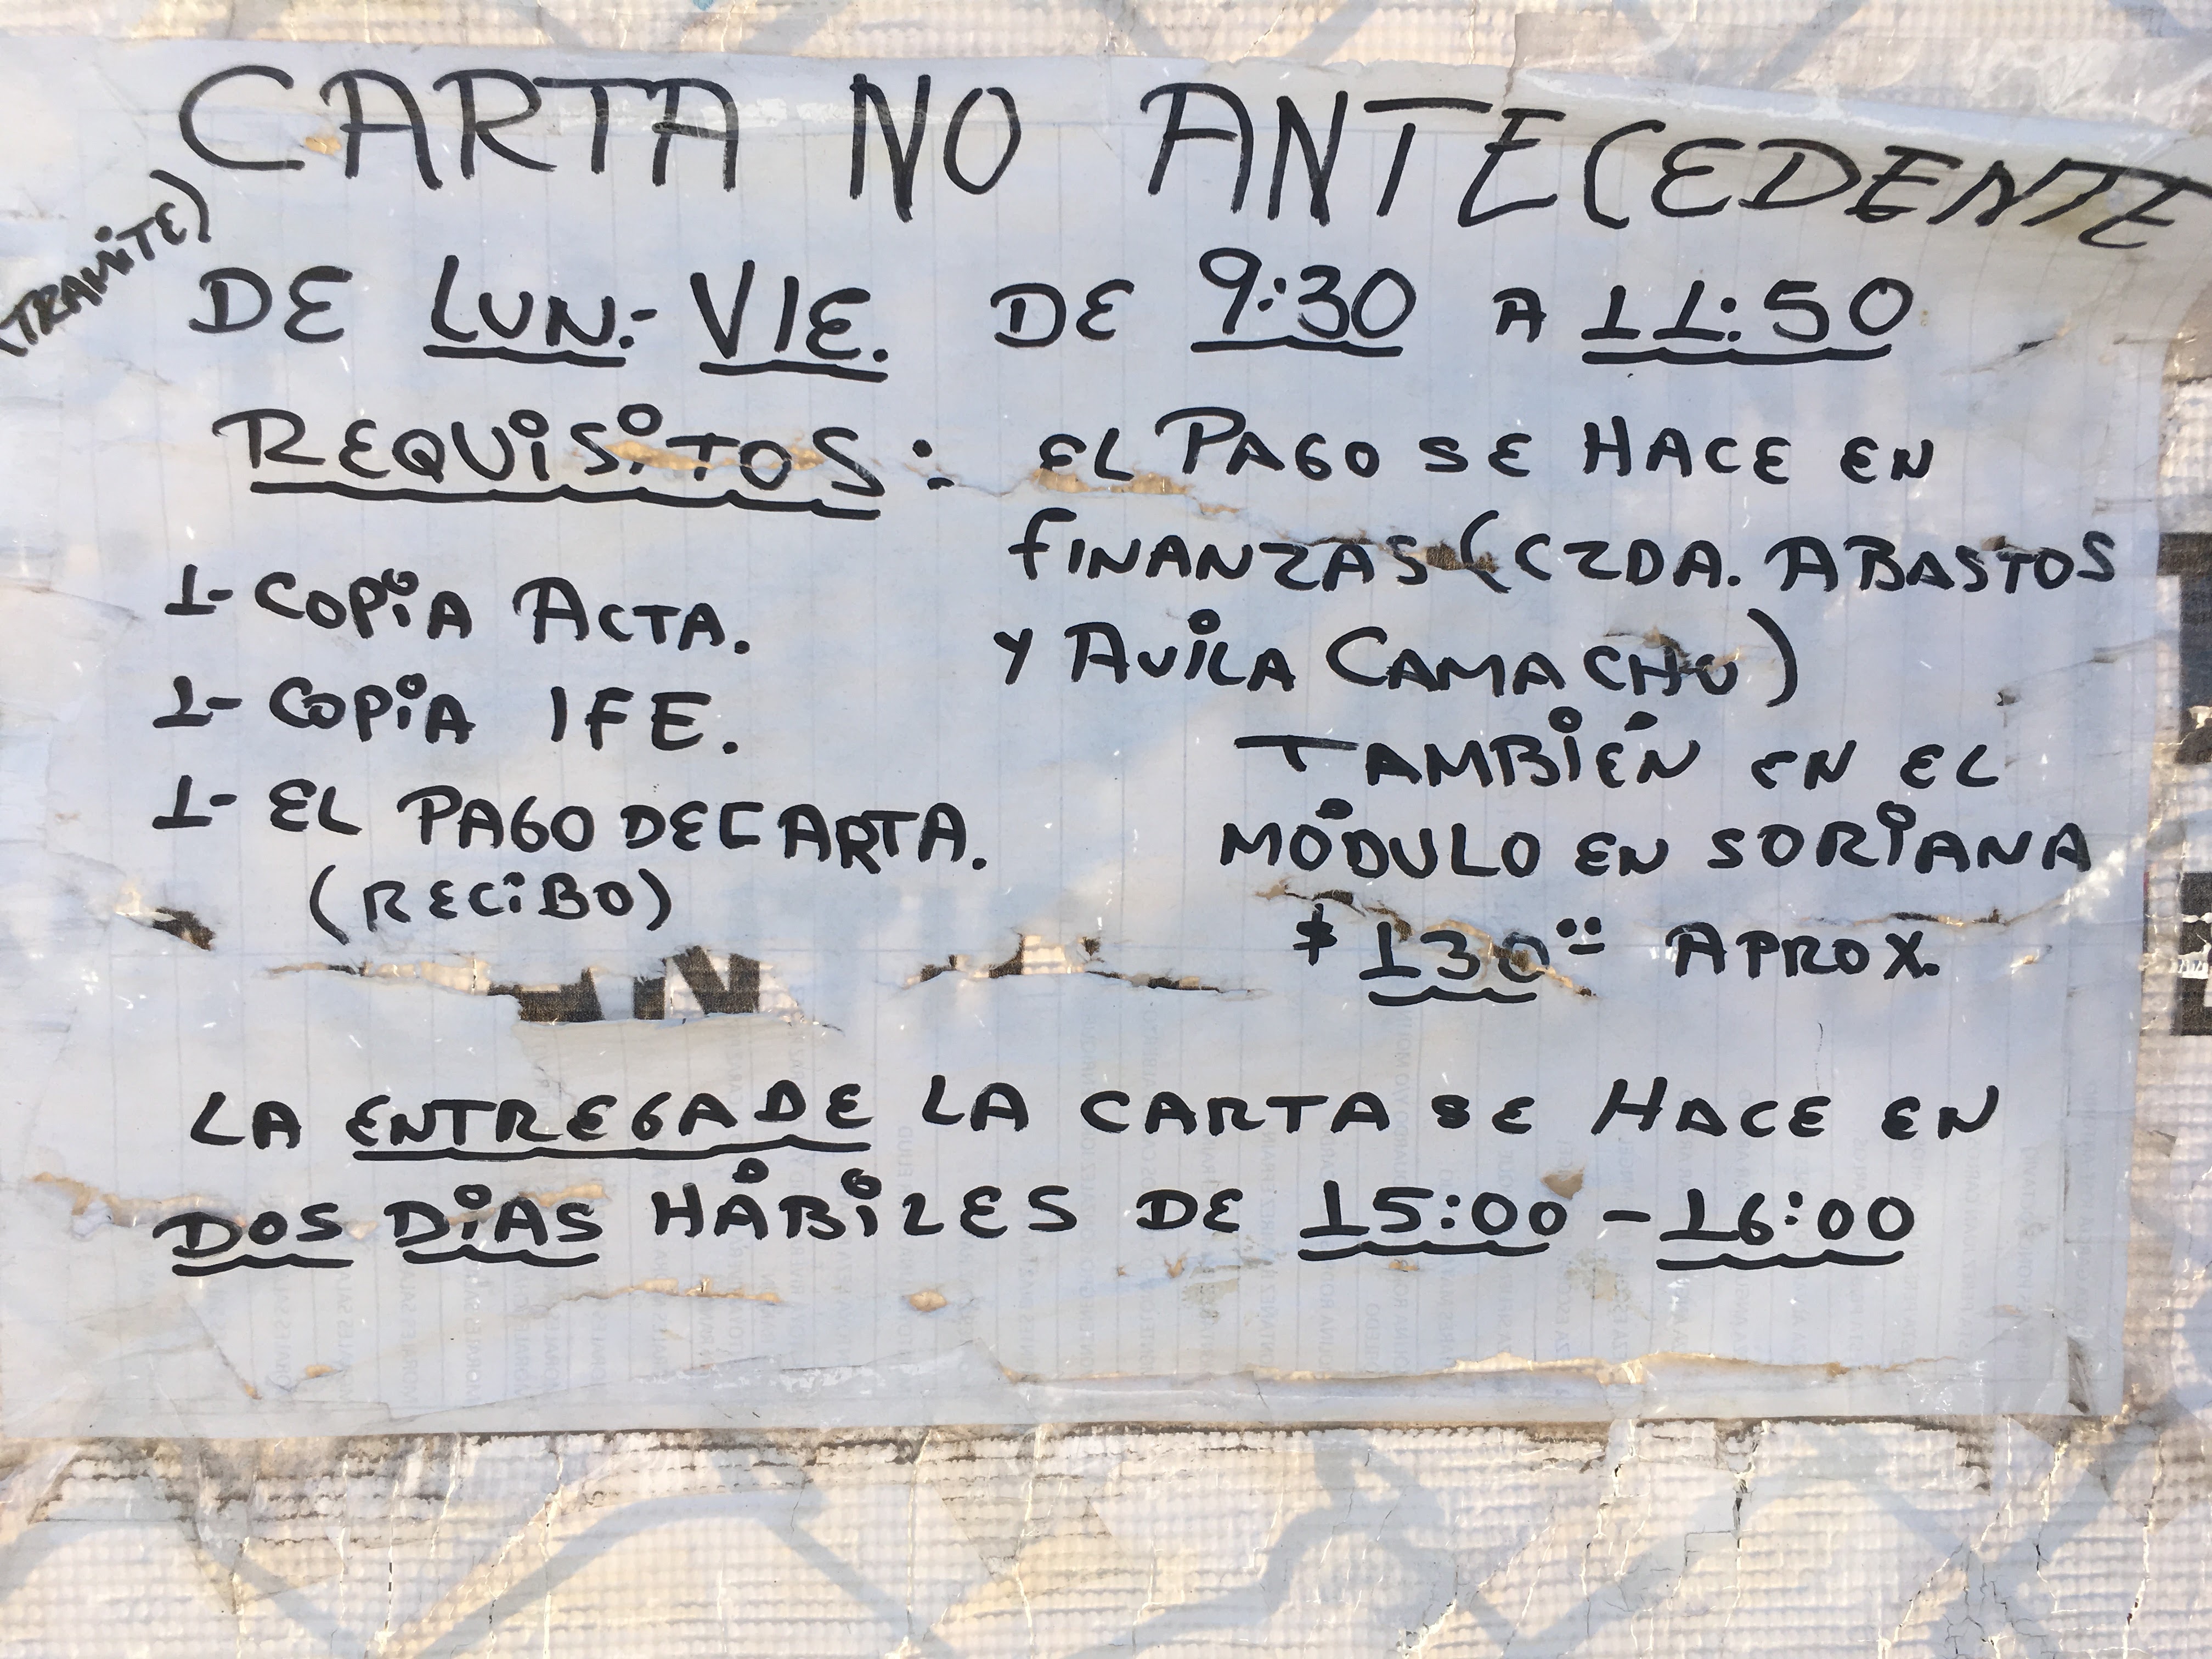 CARTA NO ANTECEDENTE
(TRAMITE)
DE LUN.- VIE. DE 9:30 A 11:50
REQUISITOS:
1- COPIA ACTA.
1- COPIA IFE.
1- EL PAGO DE CARTA.
(RECIBO)
EL PAGO SE HACE EN
FINANZAS (CZDA. ABASTOS
Y AVILA CAMACHO)
TAMBIÉN EN EL
MÓDULO EN SORIANA
$130.= APROX.
LA ENTREGA DE LA CARTA SE HACE EN
DOS DIAS HÁBILES DE 15:00 - 16:00